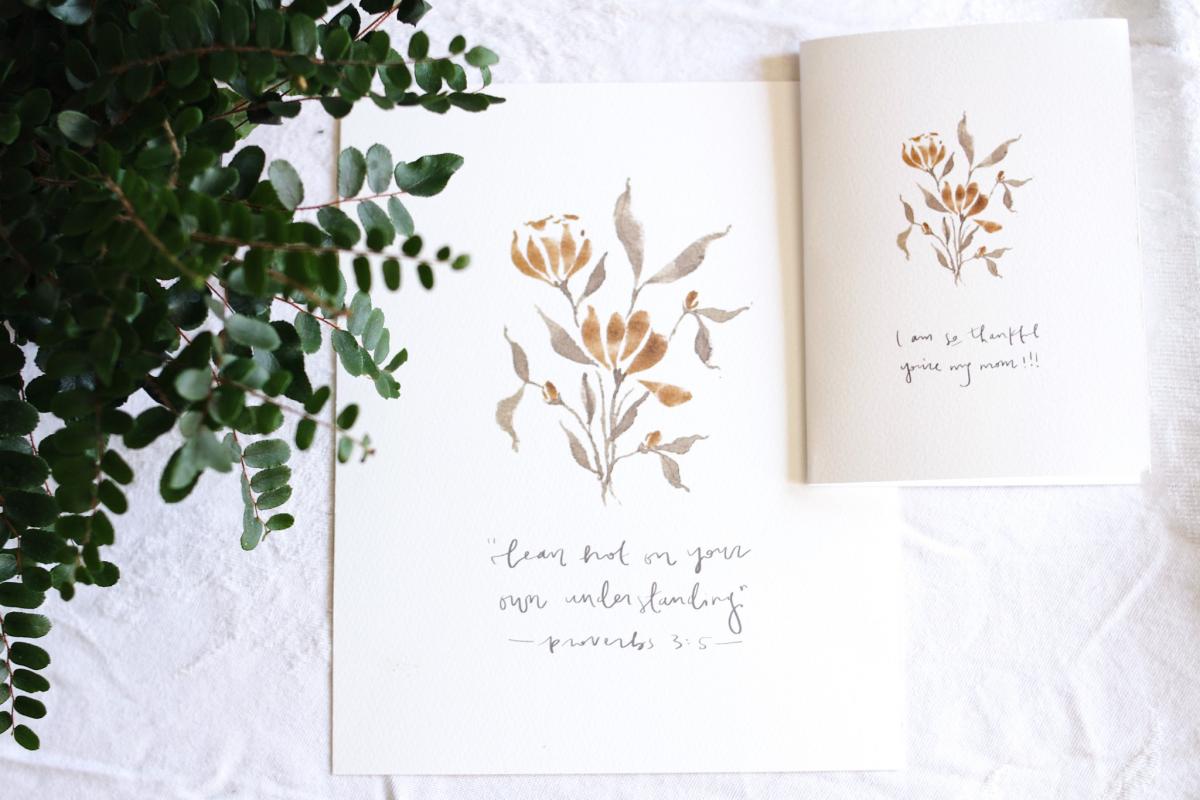 "lean not on your
own understanding"
— proverbs 3:5 —
I am so thankful
you're my mom!!!